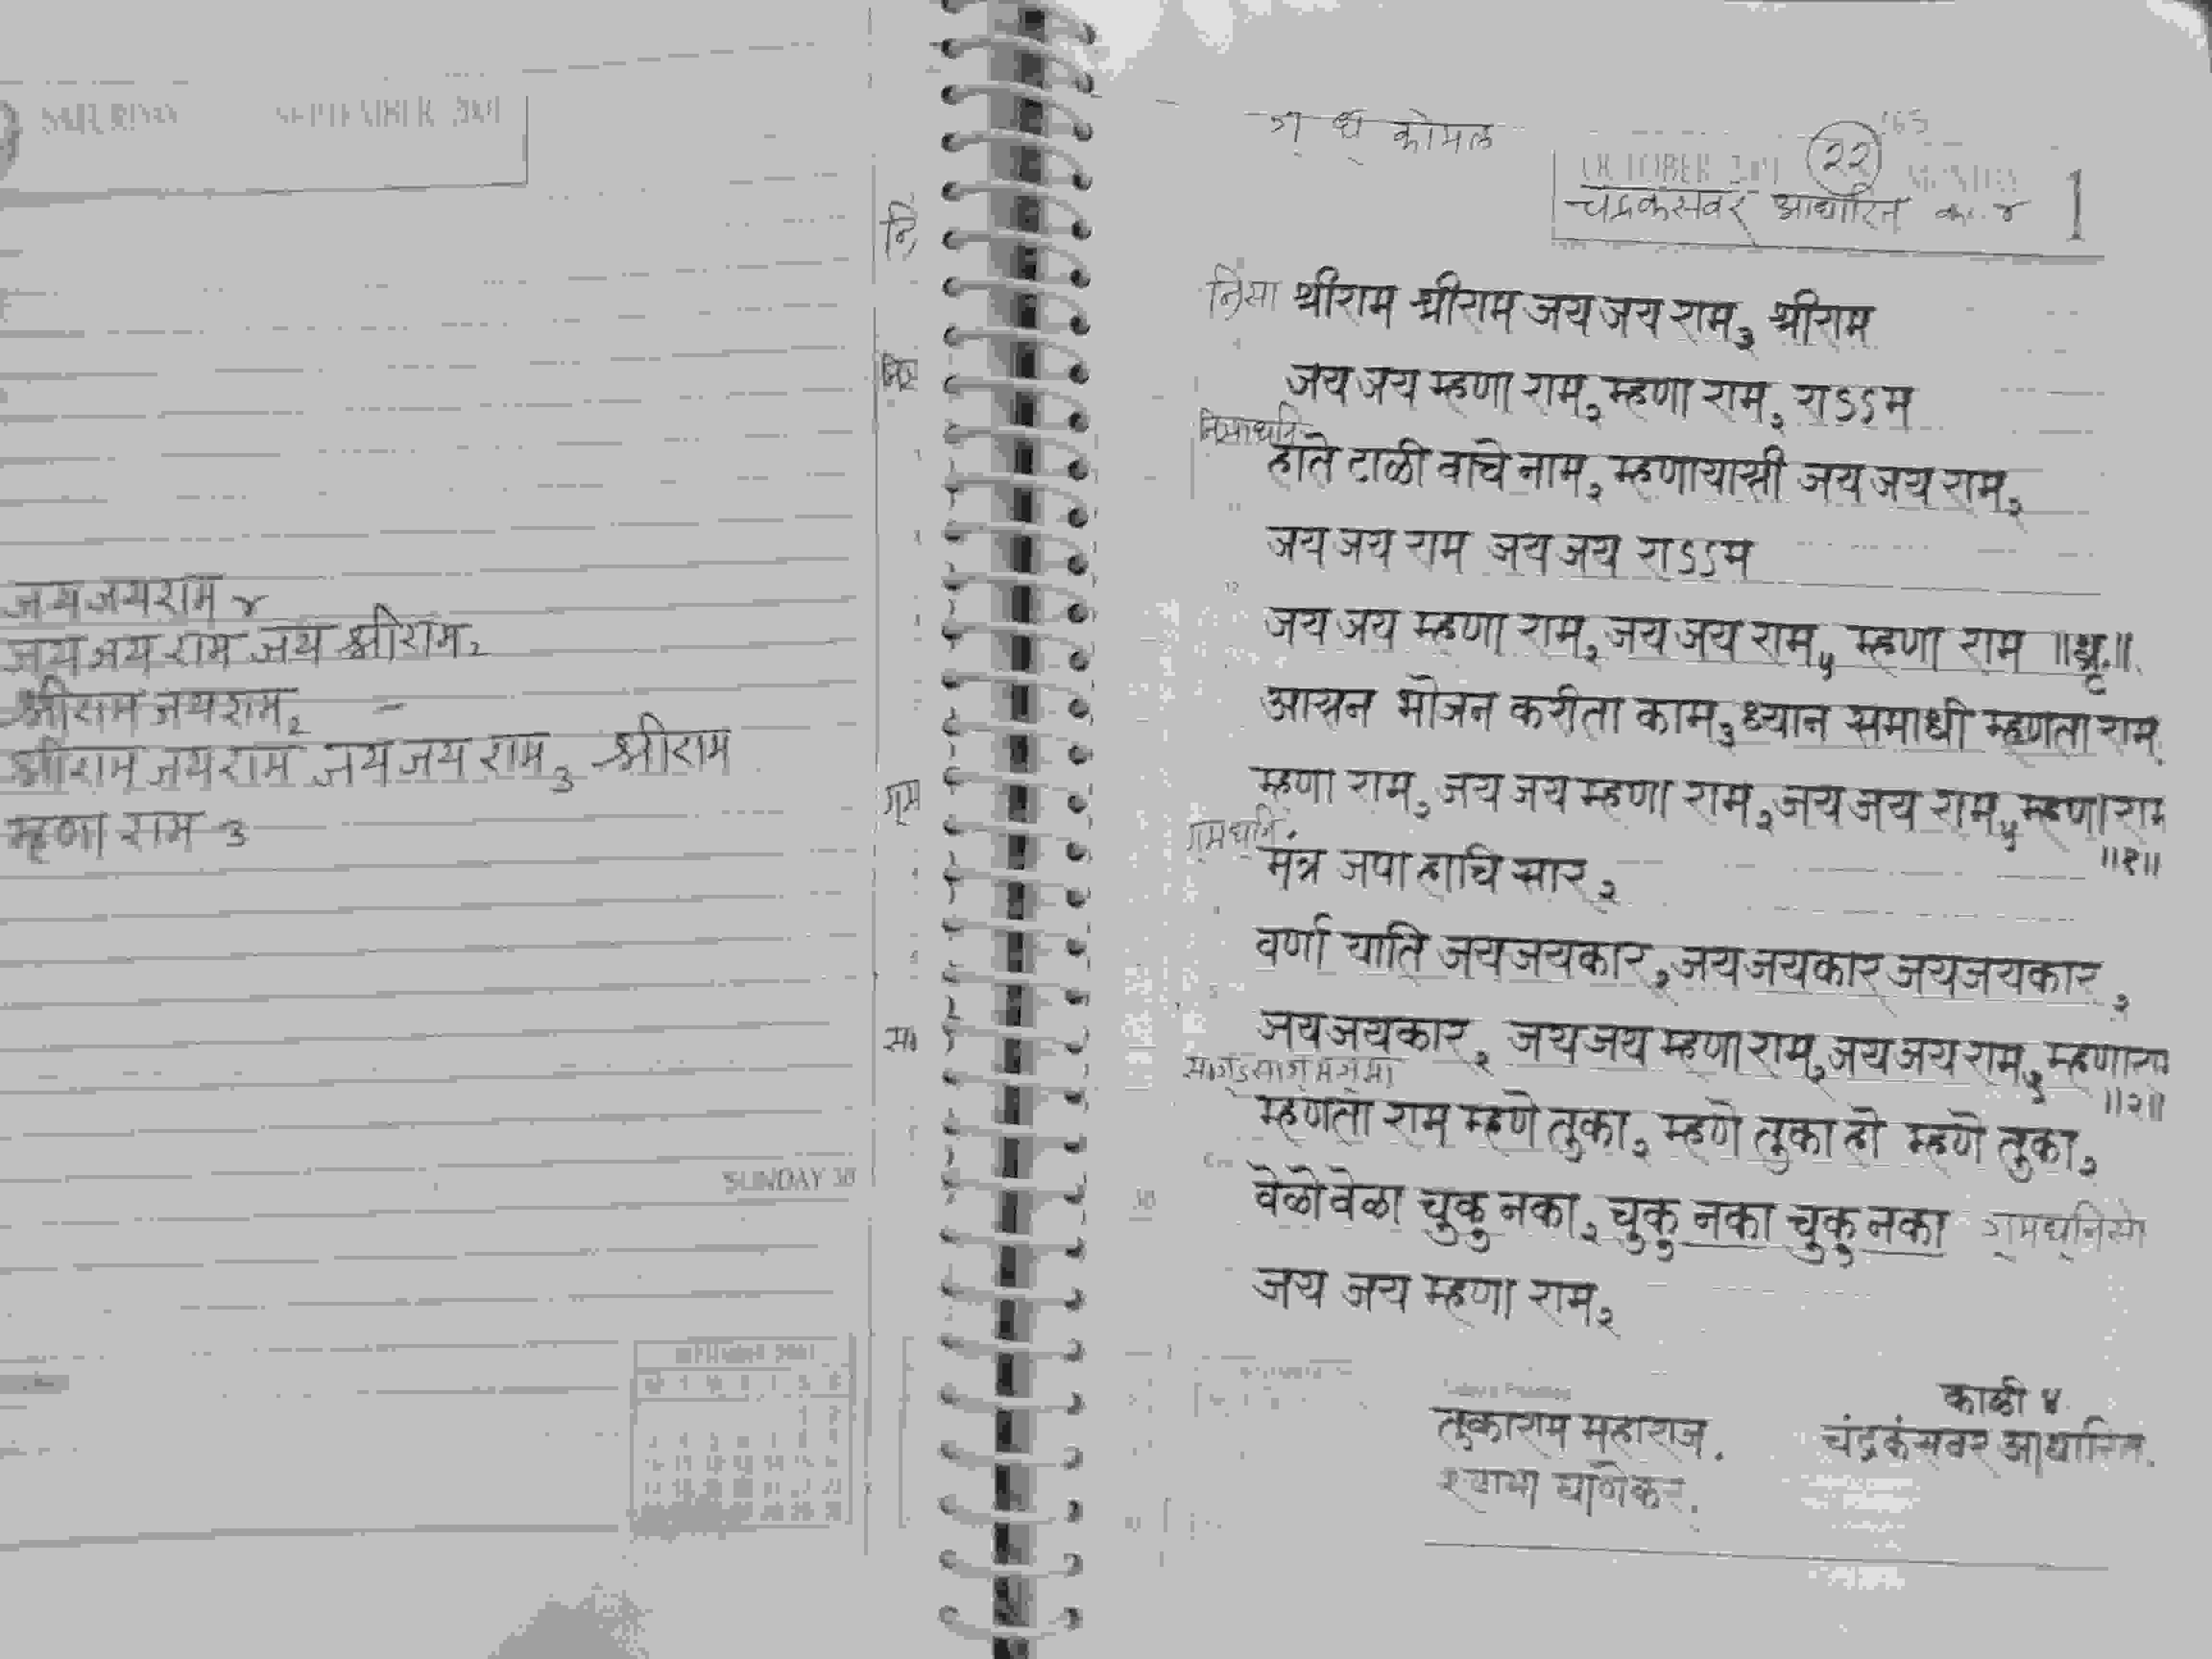 SATURDAY SEPTEMBER 2001
नि
जयजयराम ४
जय जय राम जय श्रीराम २
श्रीराम जयराम २
श्रीराम जयराम जय जय राम ३ श्रीराम
म्हणा राम ३
गम
SUNDAY 30
SEPTEMBER 2001
ग॒ ध॒ कोमल
OCTOBER 2001 २२ MONDAY 1
चंद्रकंसवर आधारित का. ४
निसा श्रीराम श्रीराम जय जय राम ३ श्रीराम
जय जय म्हणा राम २ म्हणा राम २ राऽऽम
निसाधनि
हाते टाळी वाचे नाम २ म्हणायासी जय जय राम २
जय जय राम जय जय राऽऽम
जय जय म्हणा राम २ जय जय राम ५ म्हणा राम ॥धृ.॥
आसन भोजन करीता काम ३ ध्यान समाधी म्हणता राम
म्हणा राम २ जय जय म्हणा राम २ जय जय राम ५ म्हणा राम
॥१॥
गमधनि
मंत्र जपा हाचि सार २
वर्णा याति जयजयकार २ जयजयकार जयजयकार २
जयजयकार २ जयजय म्हणा राम २ जय जय राम ५ म्हणा राम
॥२॥
म्हणता राम म्हणे तुका २ म्हणे तुका हो म्हणे तुका २
वेळोवेळा चुकु नका २ चुकु नका चुकु नका
जय जय म्हणा राम २
काळी ४
तुकाराम महाराज. चंद्रकंसवर आधारित.
घाणेकर.